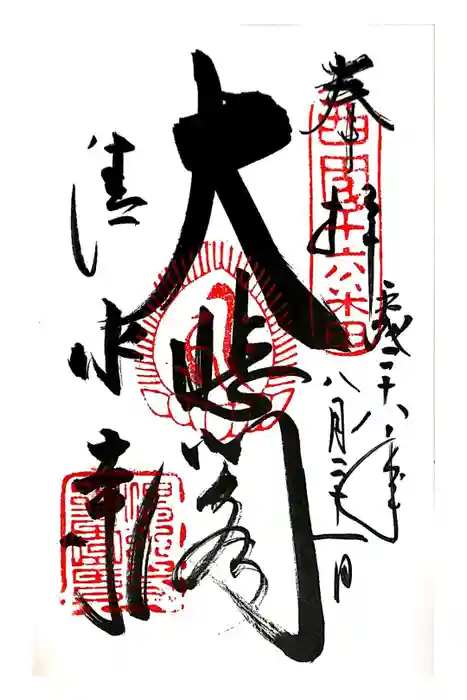 奉拝
西国十六番
平成二十八年
八月二十一日
大悲閣
清水寺